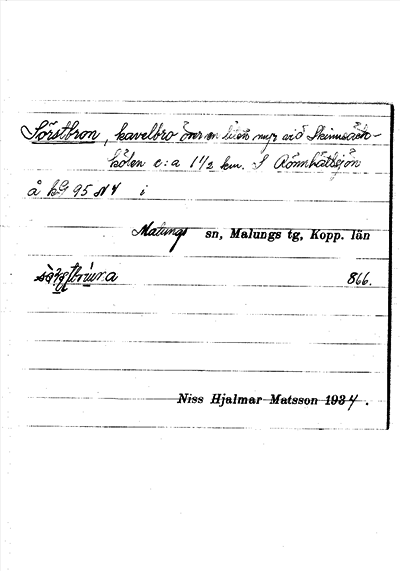 Sörstbron, kavelbro över en liten myr vid Skinnsäck-
kölen c:a 1 1/2 km. S Rönnhåttsjön
å kbl 95 NV i
Malungs sn, Malungs tg, Kopp. län
866.
Niss Hjalmar Matsson 1934.